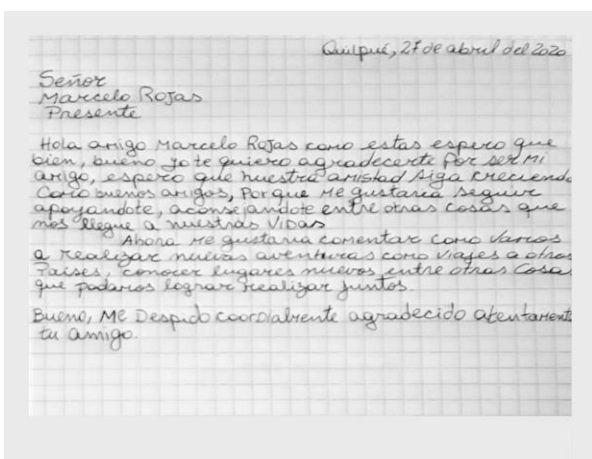 Quilpué, 27 de abril del 2020
Señor
Marcelo Rojas
Presente
Hola amigo Marcelo Rojas como estas espero que
bien, bueno yo te quiero agradecerte por ser mi
amigo, espero que nuestra amistad siga creciendo
como buenos amigos, Porque me gustaria seguir
apoyandote, aconsejandote entre otras cosas que
nos llegue a nuestras vidas
Ahora me gustaria comentar como varios
a realizar nuevas aventuras como viajes a otros
Paises, conocer lugares nuevos entre otras cosa
que podamos lograr realizar juntos.
Bueno, Me Despido coordialmente agradecido atentament
tu amigo.